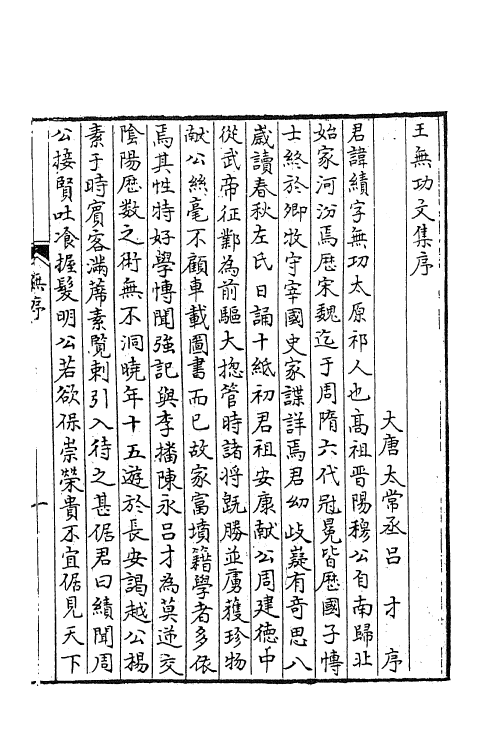 王無功文集序
大唐太常丞呂才序
君諱績字無功太原祁人也髙祖晋陽穆公自南歸北
始家河汾焉歴宋魏迄于周隋六代冠冕皆歴國子博
士終於卿牧守宰國史家諜詳焉君幼岐嶷有竒思八
歳讀春秋左氏日誦十紙初君祖安康献公周建德中
從武帝征鄴為前驅大揔管時諸将既勝並虜獲珍物
献公絲毫不顧車載圖書而已故家富墳籍學者多依
焉其性特好學博聞强記與李播陳永吕才為莫逆交
陰陽歴数之術無不洞曉年十五遊於長安謁越公楊
素于時賓客滿蓆素覧刺引入待之甚倨君曰績聞周
公接賢吐飡握髮明公若欲保崇榮貴不宜倨見天下
序
一